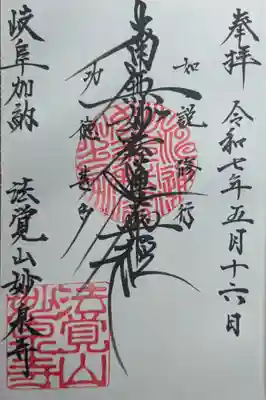 奉拝
令和七年五月十六日
如説修行
南無妙法蓮華経
功徳甚多
岐阜加納
法覚山妙泉寺
法覚山
妙泉寺